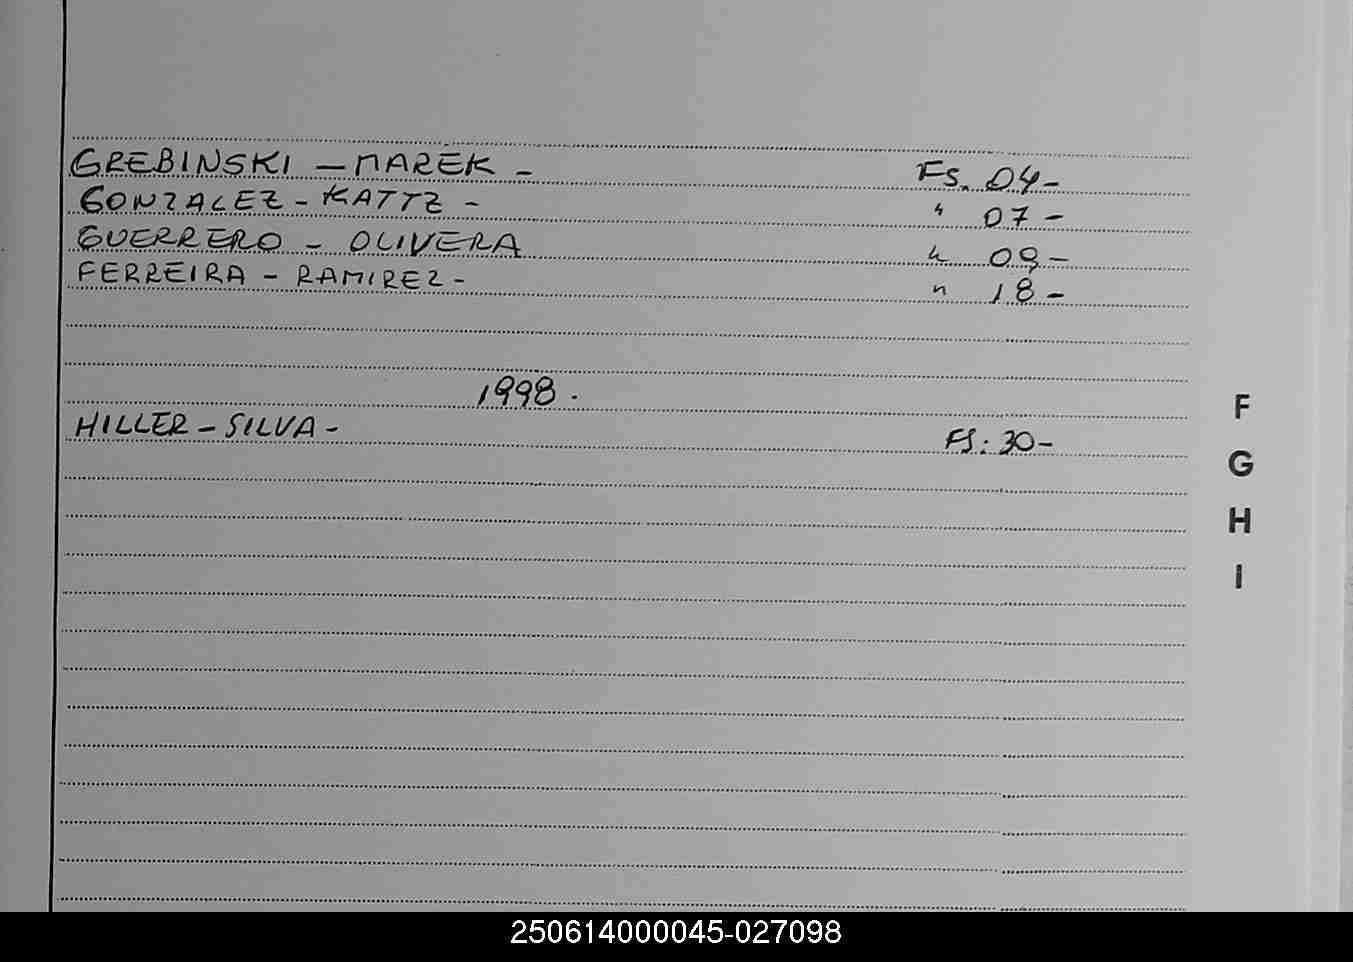 GREBINSKI - MAREK - Fs. 04-
GONZALEZ - KATTZ - " 07 -
GUERRERO - OLIVERA " 09 -
FERREIRA - RAMIREZ - " 18 -
1998.
HILLER - SILVA - FS: 30-
F
G
H
I
250614000045-027098